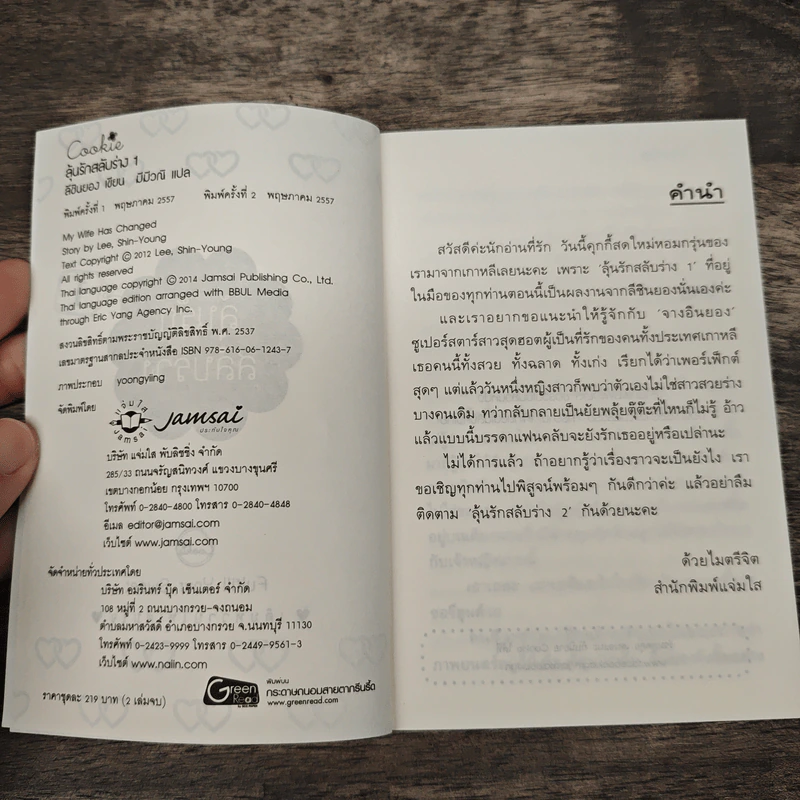 Cookie
ลุ้นรักสลับร่าง 1
ลีชินยอง เขียน มีมีวณิ แปล
พิมพ์ครั้งที่ 1 พฤษภาคม 2557 พิมพ์ครั้งที่ 2 พฤษภาคม 2557
My Wife Has Changed
Story by Lee, Shin-Young
Text Copyright © 2012 Lee, Shin-Young
All rights reserved
Thai language copyright © 2014 Jamsai Publishing Co., Ltd.
Thai language edition arranged with BBUL Media
through Eric Yang Agency Inc.
สงวนลิขสิทธิ์ตามพระราชบัญญัติลิขสิทธิ์ พ.ศ. 2537
เลขมาตรฐานสากลประจำหนังสือ ISBN 978-616-06-1243-7
ภาพประกอบ yoongyiing
จัดพิมพ์โดย
แจ่มใส
Jamsai
Jamsai
ประทับใจคุณ
บริษัท แจ่มใส พับลิชชิ่ง จำกัด
285/33 ถนนจรัญสนิทวงศ์ แขวงบางขุนศรี
เขตบางกอกน้อย กรุงเทพฯ 10700
โทรศัพท์ 0-2840-4800 โทรสาร 0-2840-4848
อีเมล editor@jamsai.com
เว็บไซต์ www.jamsai.com
จัดจำหน่ายทั่วประเทศโดย
บริษัท อมรินทร์ บุ๊ค เซ็นเตอร์ จำกัด
108 หมู่ที่ 2 ถนนบางกรวย-จงถนอม
ตำบลมหาสวัสดิ์ อำเภอบางกรวย จ.นนทบุรี 11130
โทรศัพท์ 0-2423-9999 โทรสาร 0-2449-9561-3
เว็บไซต์ www.naiin.com
ราคาชุดละ 219 บาท (2 เล่มจบ)
Green Read
พิมพ์บน
กระดาษถนอมสายตากรีนรี้ด
www.greenread.com
คำนำ
สวัสดีค่ะนักอ่านที่รัก วันนี้คุกกี้สดใหม่หอมกรุ่นของ
เรามาจากเกาหลีเลยนะคะ เพราะ 'ลุ้นรักสลับร่าง 1' ที่อยู่
ในมือของทุกท่านตอนนี้เป็นผลงานจากลีชินยองนั่นเองค่ะ
และเราอยากขอแนะนำให้รู้จักกับ 'จางอินยอง'
ซูเปอร์สตาร์สาวสุดฮอตผู้เป็นที่รักของคนทั้งประเทศเกาหลี
เธอคนนี้ทั้งสวย ทั้งฉลาด ทั้งเก่ง เรียกได้ว่าเพอร์เฟ็กต์
สุดๆ แต่แล้ววันหนึ่งหญิงสาวก็พบว่าตัวเองไม่ใช่สาวสวยร่าง
บางคนเดิม ทว่ากลับกลายเป็นยัยพลุ้ยตุ๊ต๊ะที่ไหนก็ไม่รู้ อ้าว
แล้วแบบนี้บรรดาแฟนคลับจะยังรักเธออยู่หรือเปล่านะ
ไม่ได้การแล้ว ถ้าอยากรู้ว่าเรื่องราวจะเป็นยังไง เรา
ขอเชิญทุกท่านไปพิสูจน์พร้อมๆ กันดีกว่าค่ะ แล้วอย่าลืม
ติดตาม 'ลุ้นรักสลับร่าง 2' กันด้วยนะคะ
ด้วยไมตรีจิต
สำนักพิมพ์แจ่มใส